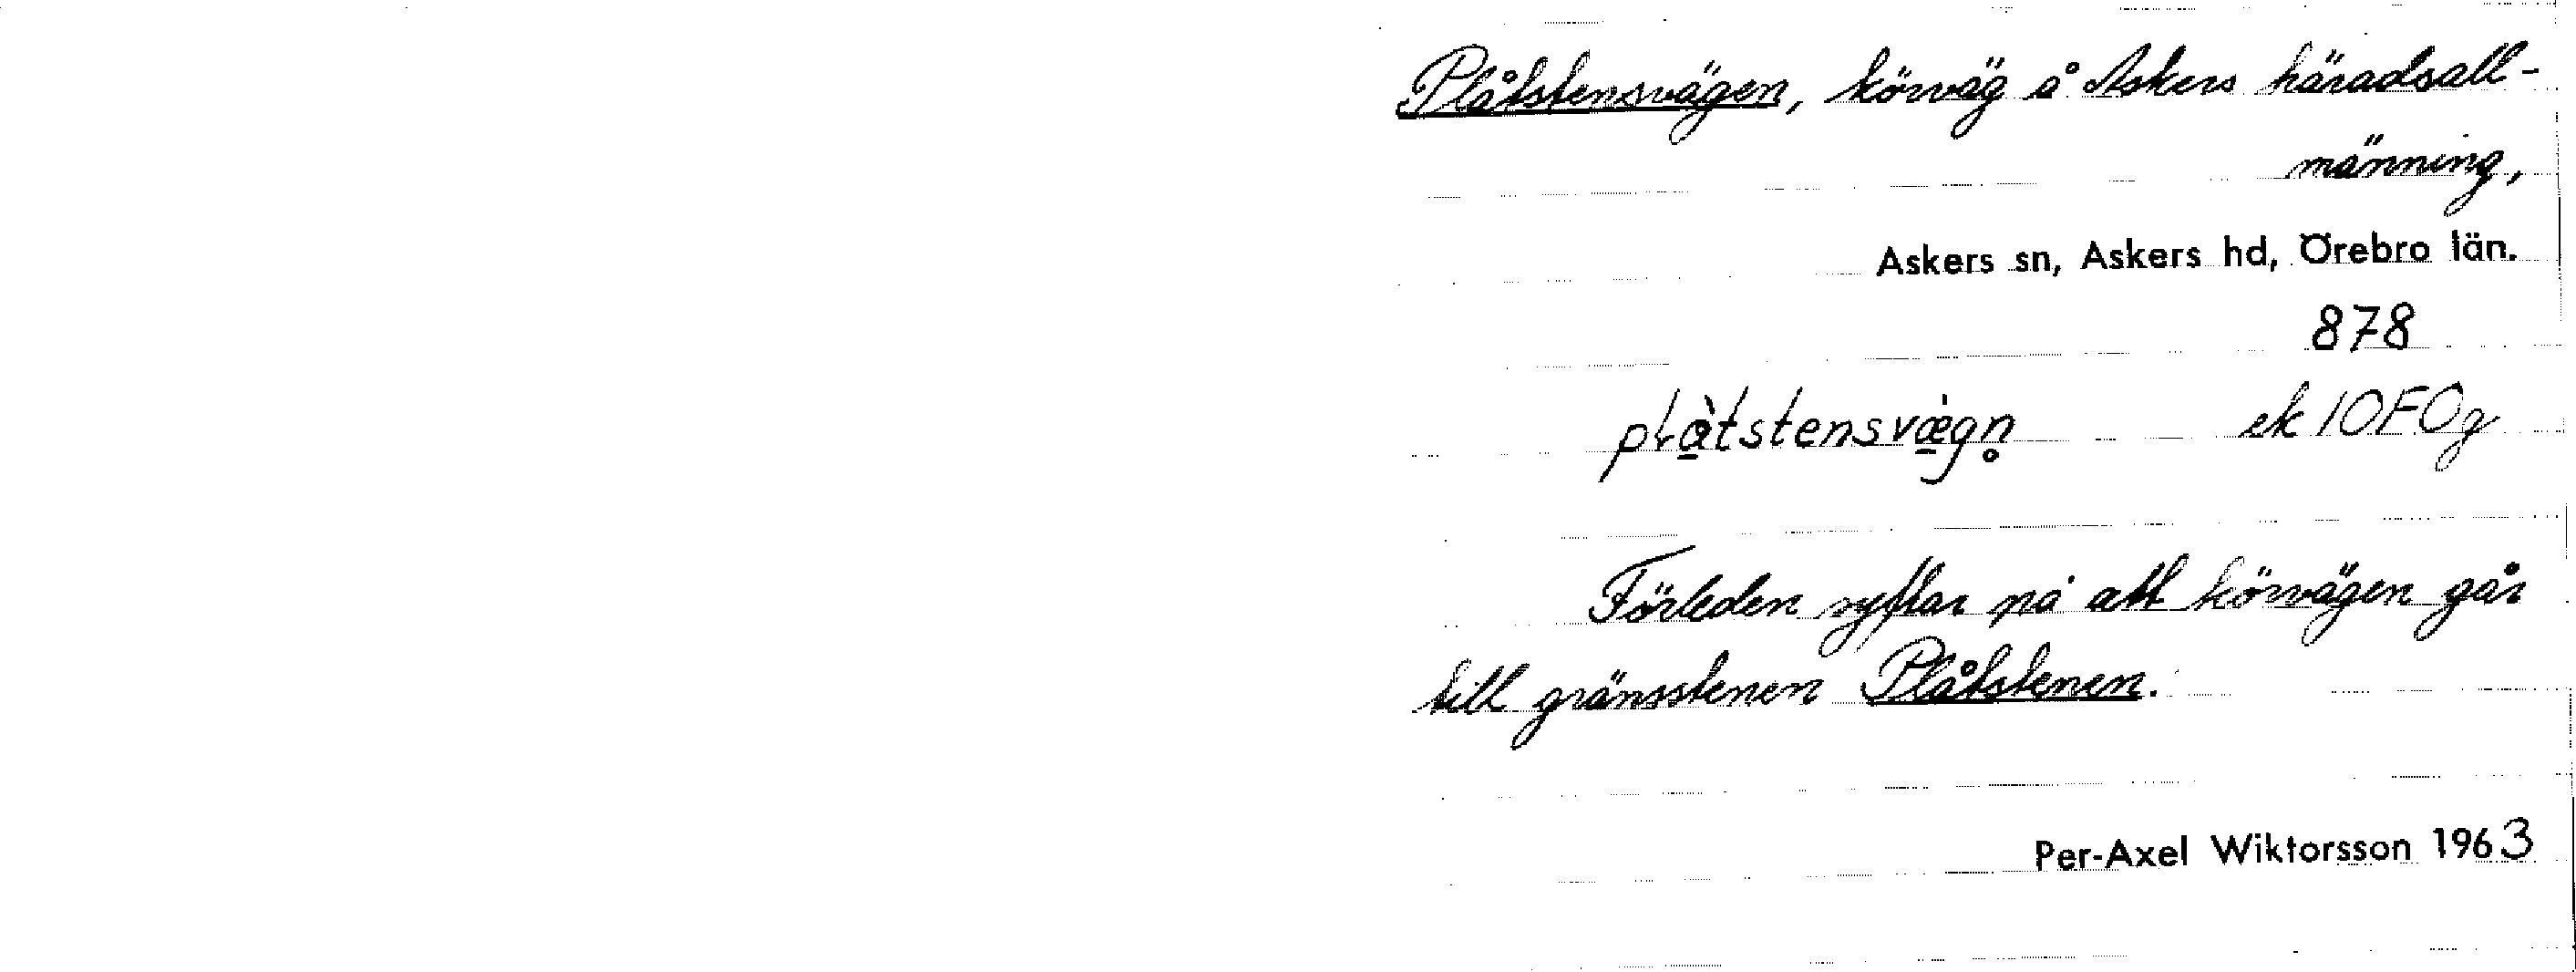 Plåtstensvägen, körväg å Askers häradsall-
männing,
Askers sn, Askers hd, Örebro län.
878
ek 10F0g
Förleden syftar på att körvägen går
till gränsstenen Plåtstenen.
Per-Axel Wiktorsson 1963